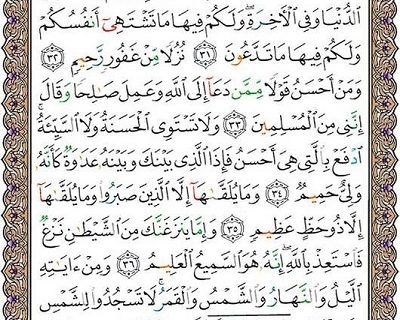 ٱلدُّنۡيَا وَفِي ٱلۡأٓخِرَةِۖ وَلَكُمۡ فِيهَا مَا تَشۡتَهِيٓ أَنفُسُكُمۡ
وَلَكُمۡ فِيهَا مَا تَدَّعُونَ ٣١ نُزُلٗا مِّنۡ غَفُورٖ رَّحِيمٖ ٣٢
وَمَنۡ أَحۡسَنُ قَوۡلٗا مِّمَّن دَعَآ إِلَى ٱللَّهِ وَعَمِلَ صَٰلِحٗا وَقَالَ
إِنَّنِي مِنَ ٱلۡمُسۡلِمِينَ ٣٣ وَلَا تَسۡتَوِي ٱلۡحَسَنَةُ وَلَا ٱلسَّيِّئَةُۚ
ٱدۡفَعۡ بِٱلَّتِي هِيَ أَحۡسَنُ فَإِذَا ٱلَّذِي بَيۡنَكَ وَبَيۡنَهُۥ عَدَٰوَةٞ كَأَنَّهُۥ
وَلِيٌّ حَمِيمٞ ٣٤ وَمَا يُلَقَّىٰهَآ إِلَّا ٱلَّذِينَ صَبَرُواْ وَمَا يُلَقَّىٰهَآ
إِلَّا ذُو حَظٍّ عَظِيمٖ ٣٥ وَإِمَّا يَنزَغَنَّكَ مِنَ ٱلشَّيۡطَٰنِ نَزۡغٞ
فَٱسۡتَعِذۡ بِٱللَّهِۖ إِنَّهُۥ هُوَ ٱلسَّمِيعُ ٱلۡعَلِيمُ ٣٦ وَمِنۡ ءَايَٰتِهِ
ٱلَّيۡلُ وَٱلنَّهَارُ وَٱلشَّمۡسُ وَٱلۡقَمَرُۚ لَا تَسۡجُدُواْ لِلشَّمۡسِ